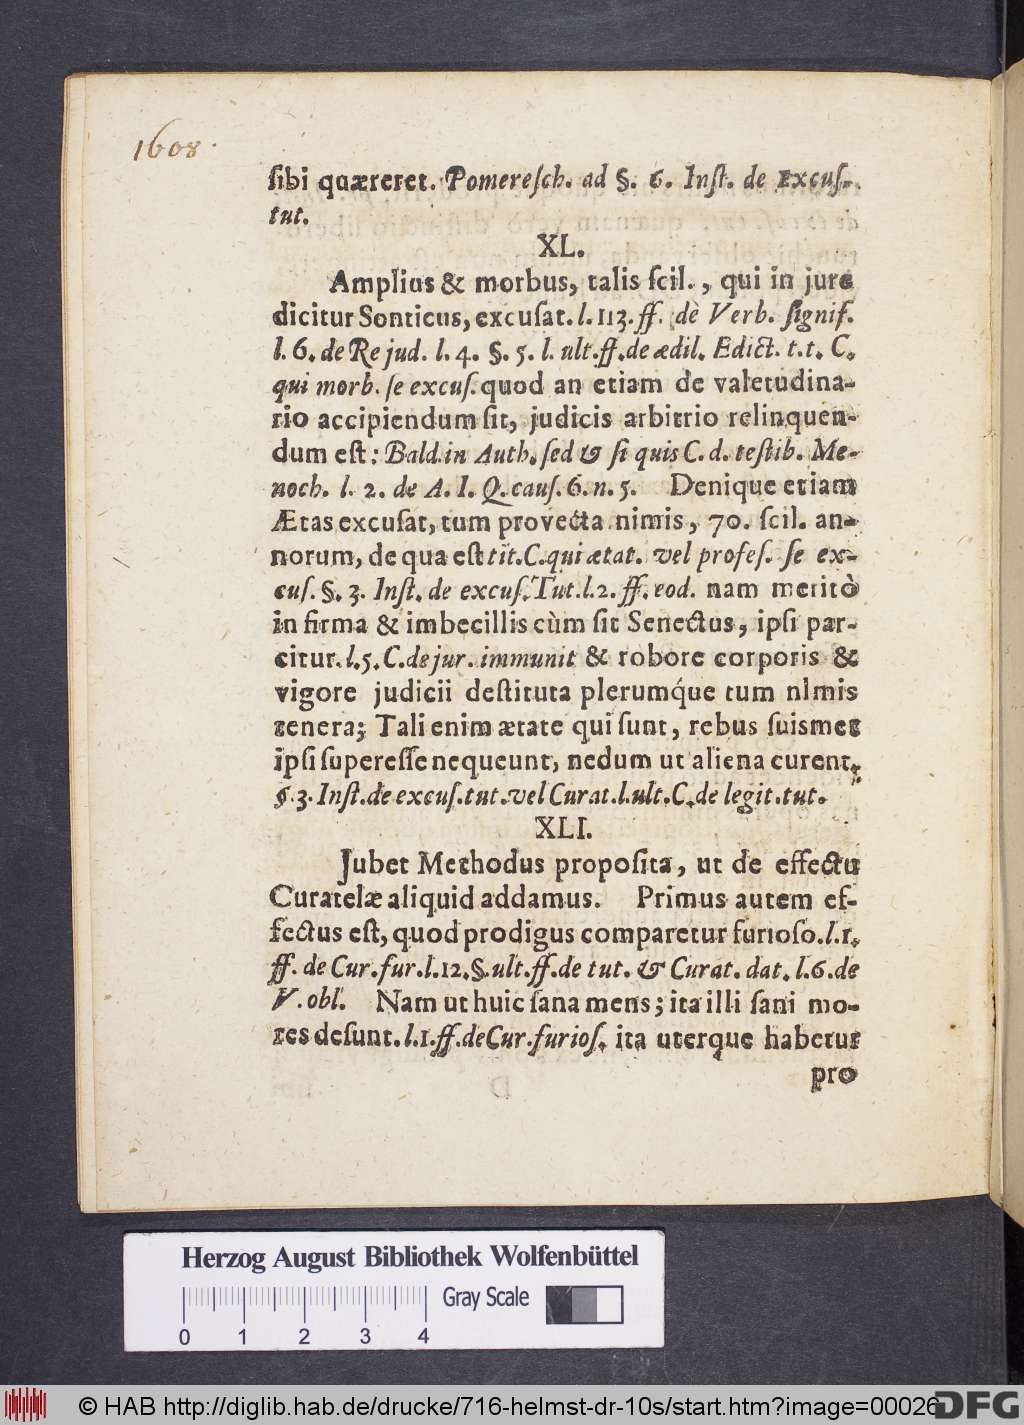 1608.
ſibi quæreret. Pomereſch. ad §. 6. Inſt. de Excuſ.
tut.
XL.
Amplius & morbus, talis ſcil., qui in jure
dicitur Sonticus, excuſat. l. 113. ff. dè Verb. ſignif.
l. 6. de Re jud. l. 4. §. 5. l. ult. ff. de ædil. Edict. t. t. C.
qui morb. ſe excuſ. quod an etiam de valetudina-
rio accipiendum ſit, judicis arbitrio relinquen-
dum eſt: Bald. in Auth. ſed & ſi quis C. d. teſtib. Me-
noch. l. 2. de A. I. Q. cauſ. 6. n. 5. Denique etiam
Ætas excuſat, tum provecta nimis, 70. ſcil. an-
norum, de qua eſt tit. C. qui ætat. vel profeſ. ſe ex-
cuſ. §. 3. Inſt. de excuſ. Tut. l. 2. ff. eod. nam meritò
in firma & imbecillis cùm ſit Senectus, ipſi par-
citur. l. 5. C. de jur. immunit & robore corporis &
vigore judicii deſtituta plerumq́ue tum nimis
tenera; Tali enim ætate qui ſunt, rebus ſuismet
ipſi ſupereſſe nequeunt, nedum ut aliena curent.
§. 3. Inſt. de excuſ. tut. vel Curat. l. ult. C. de legit. tut.
XLI.
Jubet Methodus propoſita, ut de effectu
Curatelæ aliquid addamus. Primus autem ef-
fectus eſt, quod prodigus comparetur furioſo. l. 1.
ff. de Cur. fur. l. 12. §. ult. ff. de tut. & Curat. dat. l. 6. de
V. obl. Nam ut huic ſana mens; ita illi ſani mo-
res deſunt. l. 1. ff. de Cur. furioſ. ita uterque habetur
pro
Herzog August Bibliothek Wolfenbüttel
Gray Scale
0 1 2 3 4
© HAB http://diglib.hab.de/drucke/716-helmst-dr-10s/start.htm?image=00026
DFG